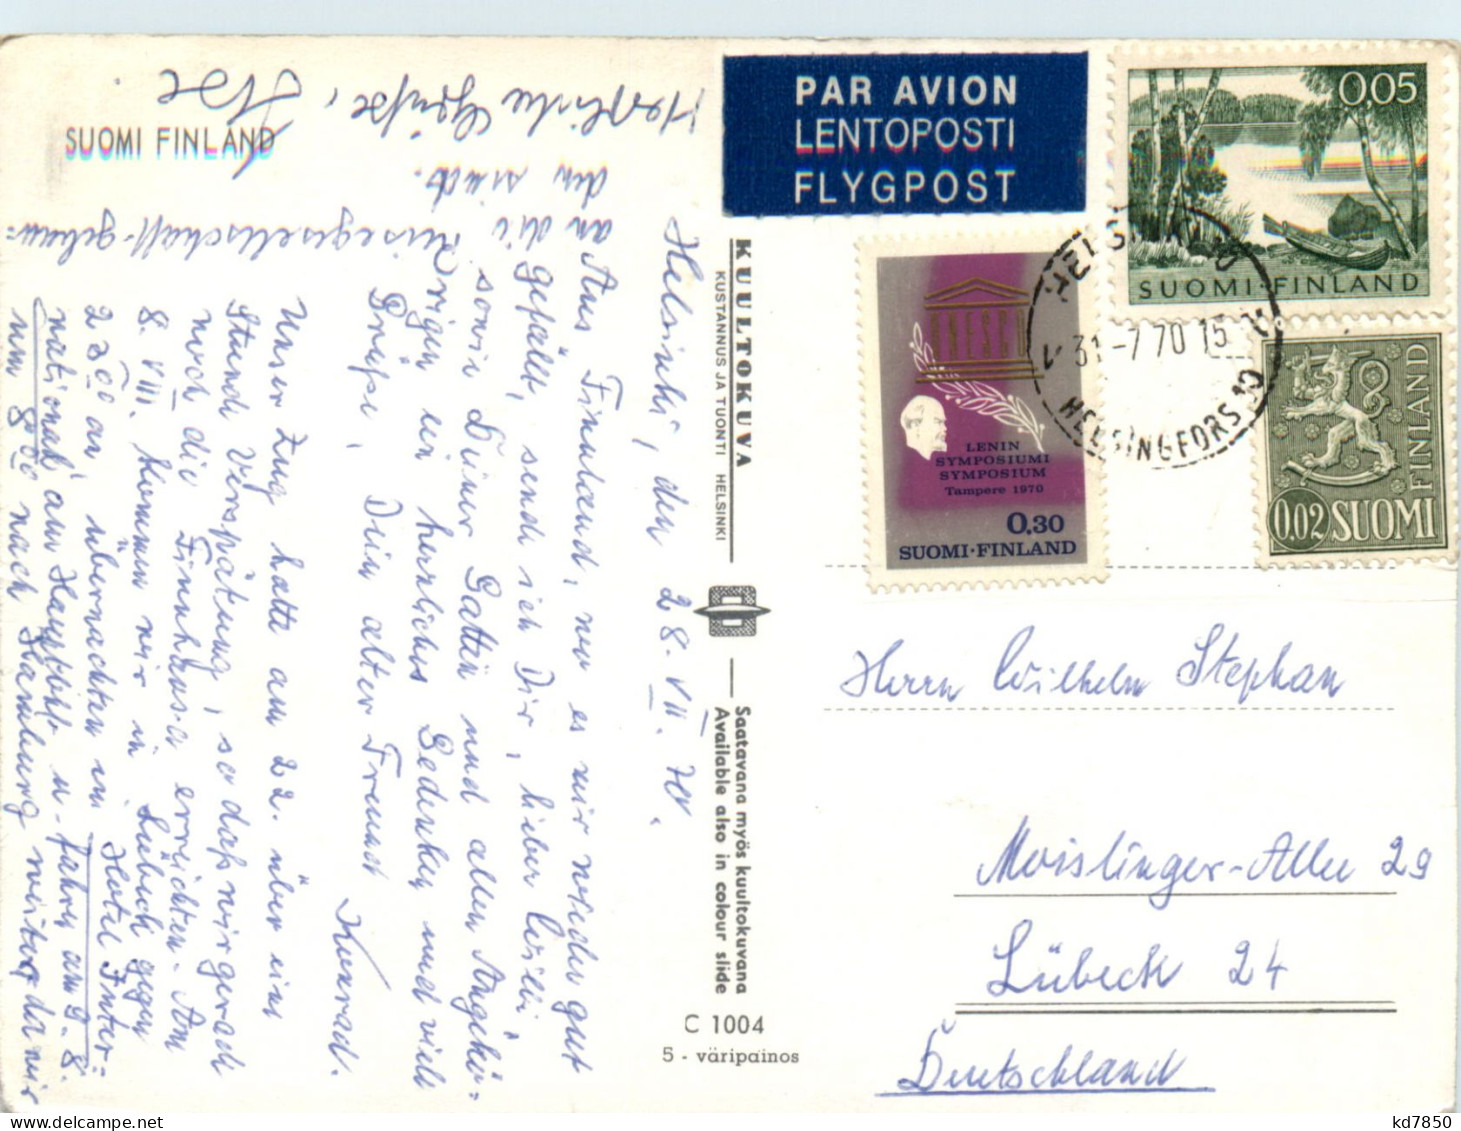 SUOMI FINLAND
Herzliche Grüße, Ilse
Helsinki, den 28. VII. 70.
Aus Finnland, wo es mir wieder gut
gefällt, sende ich Dir, lieber Willi,
sowie Deiner Gattin und allen Angehö-
rigen ein herrliches Gedenken und viele
Grüße, Dein alter Freund
Konrad.
Unser Zug hatte am 22. über eine
Stunde Verspätung, so daß wir gerade
noch die Finnhansa erreichten. Am
8. VIII. kommen wir in Lübeck gegen
22°° an, übernachten im Hotel Inter-
national am Hauptbhf u. fahren am 9. 8.
um 8°° nach Hamburg weiter, da wir
an die Reisegesellschaft gebun-
den sind.
KUULTOKUVA
KUSTANNUS JA TUONTI HELSINKI
Saatavana myös kuultokuvana
Available also in colour slide
C 1004
5 - väripainos
PAR AVION
LENTOPOSTI
FLYGPOST
0,05
SUOMI·FINLAND
UNESCO
LENIN
SYMPOSIUMI
SYMPOSIUM
Tampere 1970
0,30
SUOMI·FINLAND
FINLAND
0,02 SUOMI
HELSINKI
31-7 70 15
HELSINGFORS 10
Herrn Wilhelm Stephan
Moislinger-Allee 29
Lübeck 24
Deutschland
kd7850